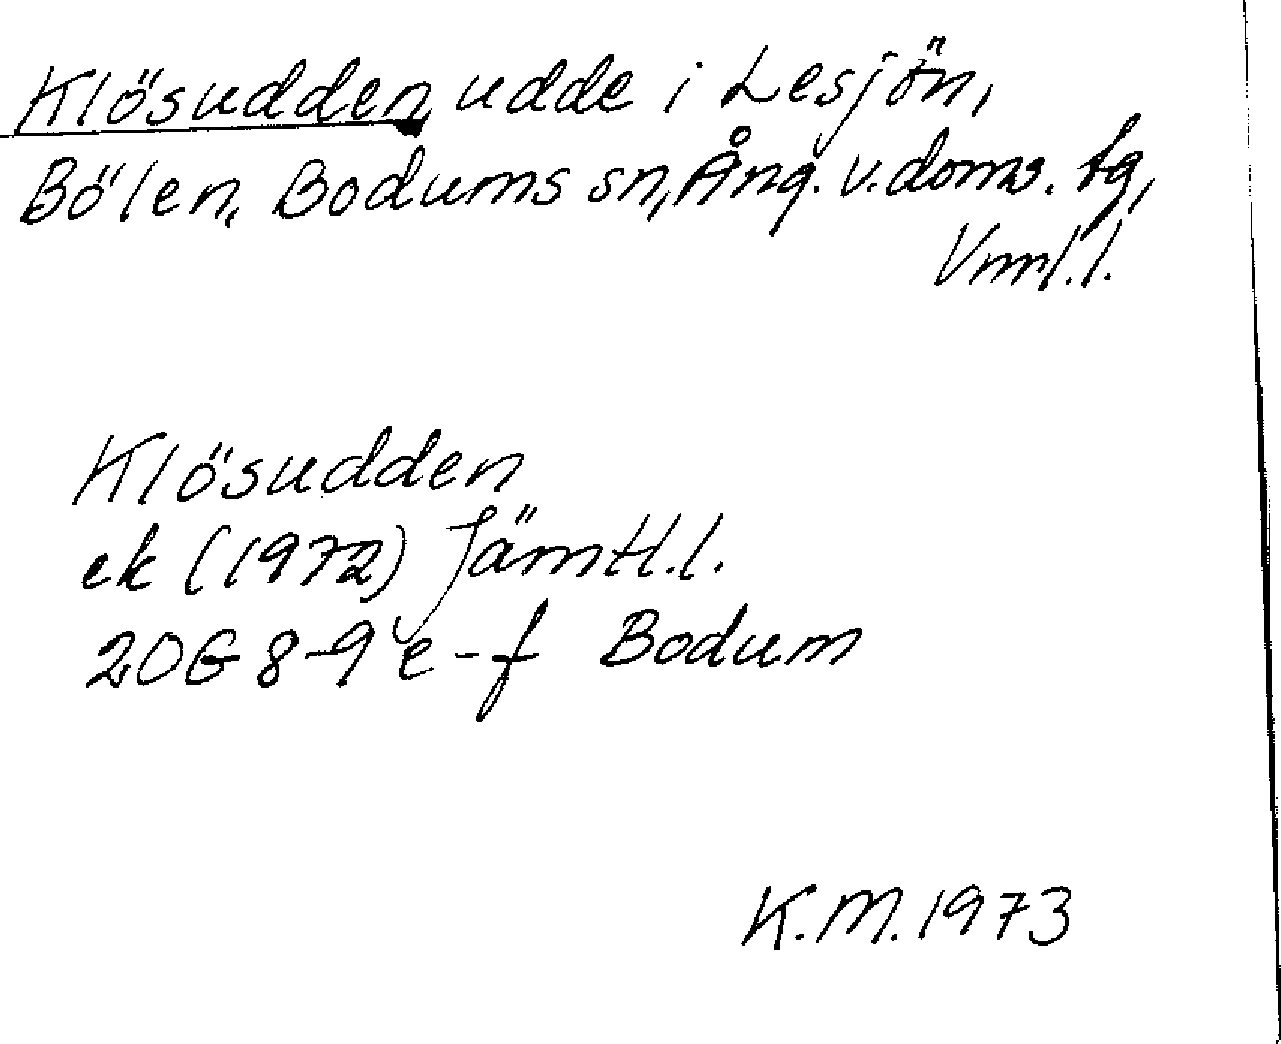 Klösudden, udde i Lesjön,
Bölen, Bodums sn, Ång. v. doms. tg,
Vnrl.l.
Klösudden
ek (1972) Jämtl.l.
20G 8-9 e-f Bodum
K.M. 1973